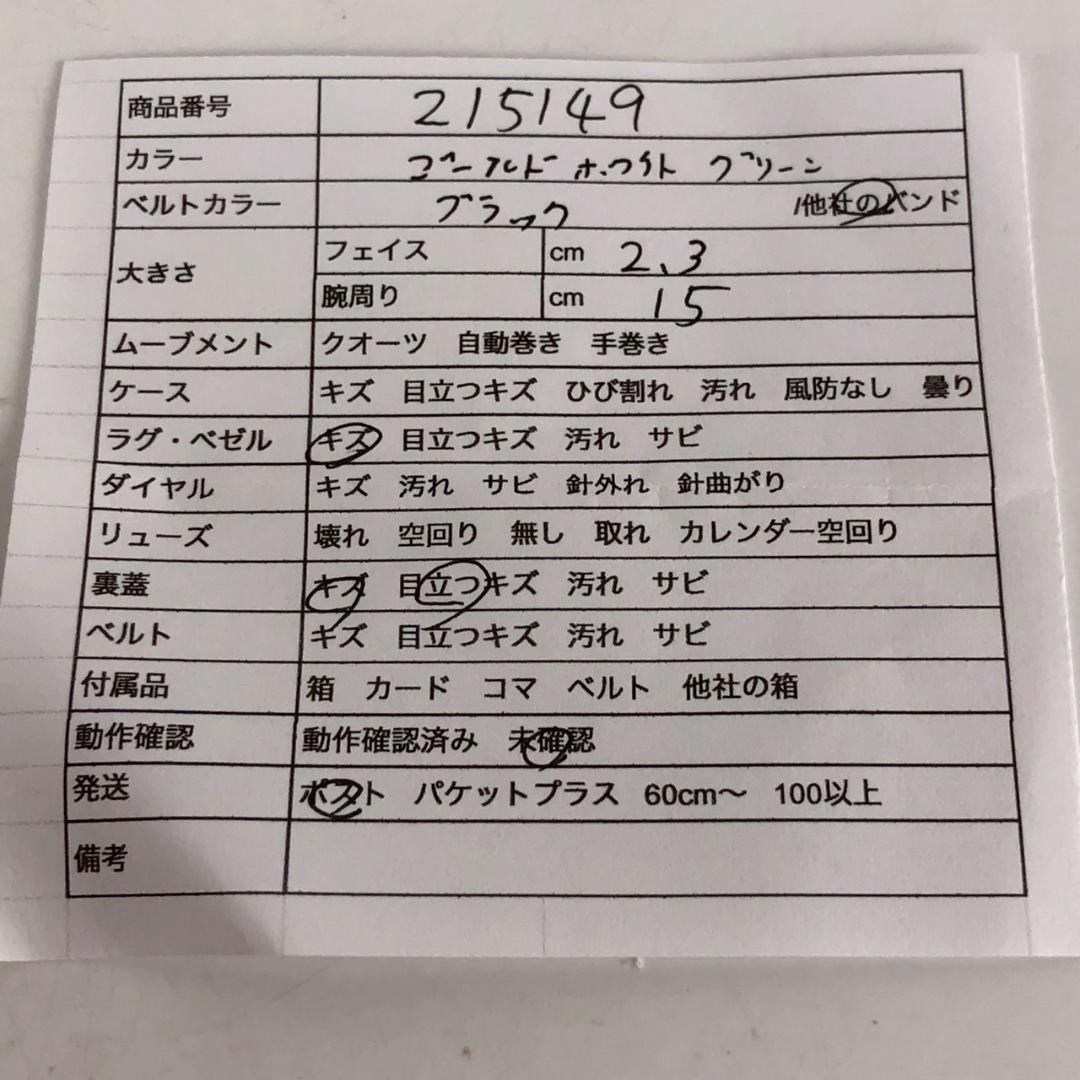 商品番号 215149
カラー ゴールド ホワイト グリーン
ベルトカラー ブラック /他社のバンド
大きさ フェイス cm 2.3
腕周り cm 15
ムーブメント クオーツ 自動巻き 手巻き
ケース キズ 目立つキズ ひび割れ 汚れ 風防なし 曇り
ラグ・ベゼル キズ 目立つキズ 汚れ サビ
ダイヤル キズ 汚れ サビ 針外れ 針曲がり
リューズ 壊れ 空回り 無し 取れ カレンダー空回り
裏蓋 キズ 目立つキズ 汚れ サビ
ベルト キズ 目立つキズ 汚れ サビ
付属品 箱 カード コマ ベルト 他社の箱
動作確認 動作確認済み 未確認
発送 ポスト パケットプラス 60cm〜 100以上
備考